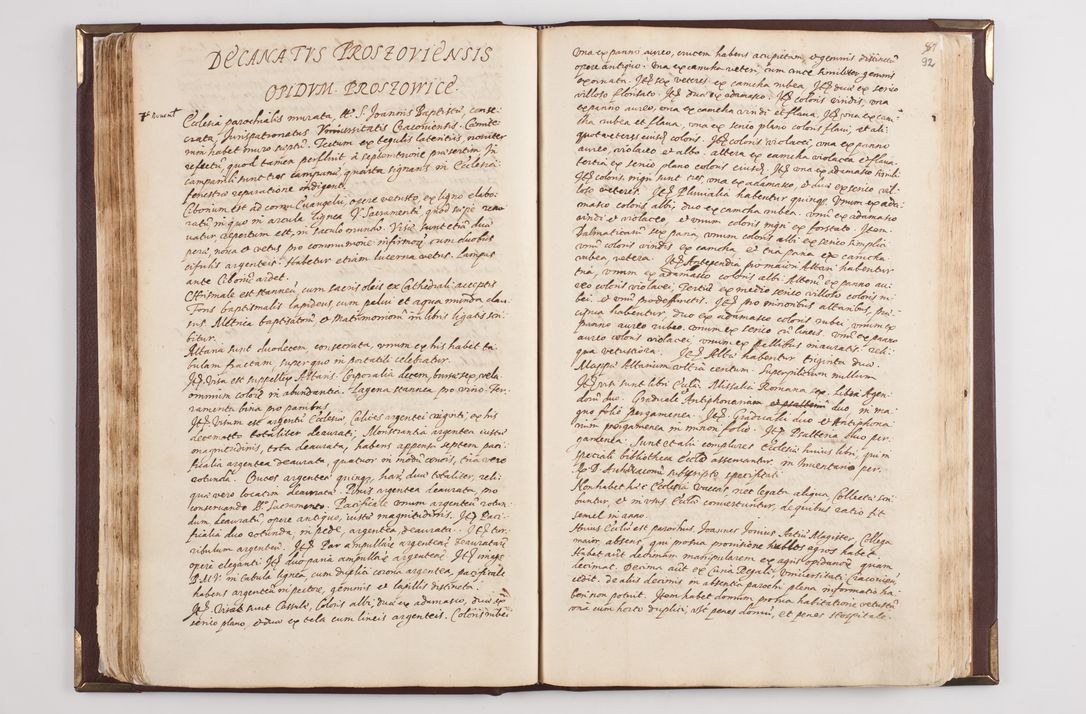 DECANATVS PROSZOVIENSIS
OPIDVM PROSZOWICE
Ecclesia parochialis murata, tt. S. Joannis Baptistæ conse-
crata, Jurispatronatus Vniuersitatis Cracouiensis. Cæmite-
rium habet muro septũ. Tectum ex tegulis latentiis nouiter
refectũ quod tamen perfluit à septemtrione præsertim In
campanili sunt tres campanæ, quarta signans in Ecclesia
fenestræ reparatione indigent.
Ciborium est ad cornu Euangelij, opere vetusto ex ligno elabo-
ratũ in quo in arcula lignea V. Sacramentũ, quod sæpe reno
uatur, repertum est, in sacculo mundo. Visæ sunt etiã duæ
peræ, noua et vetus pro communione infirmorũ cum duobus
cifulis argenteis. Habetur etiam lucerna vetus. Lampas
ante Ciboriũ ardet.
Chrismale est stanneũ, cum sacris oleis ex Cathedrali acceptis
Fons baptismalis lapideus cum pelui et aqua munda clau
sus. Metrica baptizatorũ et Matrimoniorũ in libris ligatis scri
bitur.
Altaria sunt duodecem consecrata, vnum ex his habet ta
bulam fractam, super quo in portatili celebratur.
Itẽ Visa est suppellex Altaris. Corporalia decem, bursæ sex, vela
omnium colorũ in abundantia. Lagena stannea pro vino. Fer-
ramenta bina pro panibus.
Itẽ Visum est argentũ Ecclesiæ, Calices argentei viginti, ex his
decem octo totaliter deaurati, Monstrantia argentea iustæ
magnitudinis, tota deaurata, habens appensa septem paci-
ficalia argentea deaurata, quatuor in modũ crucis, tria vero
rotunda. Cruces argenteæ quinqꝫ, harũ duæ totaliter, reli-
quæ vero locatim deauratæ. Pixis argentea deaurata, pro
conseruando Sꝫ Sacramento. Pacificale vnum argenteũ rotun-
dum deauratũ, opere antiquo, iustæ magnitudinis. Itẽ Paci-
ficalia duo rotunda, in pede, argentea deaurata. Itẽ tur-
ribulum argenteũ. Itẽ Par ampullarũ argentearũ deauratarũ
opere eleganti Itẽ duo paria ampullarũ argentearũ Itẽ imago
B. M. V. in tabula lignea, cum duplici corona argentea, pacificale
habens argenteũ in pectore, gemmis et lapillis distinctũ.
Itẽ Visæ sunt Casulæ, Coloris albi, duæ ex adamasco, duæ ex
serico plano, et duæ ex tela cum lineis argenteis. Coloris rubei
87
92
vna ex panno aureo, crucem habens acupictam et gemmis distinctã
opere antiquo. vna ex camcha veteri, cum cruce similiter gemmis
exornata. Itẽ sex veteres ex camcha rubea. Itẽ duæ ex serico
villoso floritato. Itẽ duæ ex adamasco. Itẽ coloris viridis, vna
ex panno aureo, vna ex camcha viridi et flaua, Itẽ vna ex cam-
cha rubea et flaua, vna ex serico plano coloris flaui, et ali
quot veteres eiusdẽ coloris. Itẽ coloris violacei, vna ex panno
aureo, violaceo et albo, altera ex camcha violacea et flaua,
tertia ex serico plano coloris eiusdẽ. Itẽ vna ex adamasco simili
Itẽ coloris nigri sunt tres, vna ex adamasco, et duæ ex serico vil-
loso veteres. Itẽ Pluuialia habentur quinqꝫ Vnum ex ada
masco coloris albi, duo ex camcha rubea, vnũ ex adamasco
viridi et violaceo, et vnum coloris nigri ex forstato. Item
Dalmaticarũ sex paria, vnum coloris albi ex serico simplici
vnũ coloris viridis ex camcha, et tria paria ex camcha
rubea, vetera. Itẽ Antependia pro maiori Altari habentur
tria, vnum ex adamasco coloris albi. Alterũ ex panno au-
reo coloris violacei, Tertiũ ex medio serico villoso coloris ru
bei. et vnũ pro defunctis. Itẽ pro minoribus altaribus, præ-
cipua habentur, duo ex adamasco coloris rubei, vnum ex
panno aureo rubeo, vnum ex serico cũ lineis, vnũ ex panno
aureo coloris violacei, vnum ex pellibus inauratis. reli-
qua vetustiora. Itẽ Albæ habentur triginta duæ.
Mappæ Altarium vltra centum. Superpellicium nullum
Itẽ visi sunt libri Ecclæ. Missalia Romana sex, Libri Agen-
dorũ duo. Graduale, Antiphonarium duo in ma-
gno folio pergamenea. Itẽ Gradualia duo et Antiphona
rium pergamenea in minori folio. Itẽ Psalteria duo per-
gamenea. Sunt et alij complures Ecclesiæ huius libri, qui in
speciali bibliotheca Ecclæ asseruantur, in Inuentario per
R. D. Archidiaconũ subscripto specificati.
Non habet hæc Ecclesia vaccas, nec legata aliqua, Collectæ scri
buntur, et in vsus Ecclæ conuertuntur, de quibus ratio fit
semel in anno.
Huius Ecclæ est parochus Joannes Jonius Artiũ Magister, Collega
maior absens, qui pro sua prouisione agros habet.
Habet aũt decimam manipularem ex agris opidanorũ quam
decimat. Decima aũt ex Curia Regali Vniuersitati Cracouien
cedit. de aliis decimis in absentia parochi plena informatio ha
beri non potuit. Item habet domum pro sua habitatione vetustã
vna cum horto duplici, vst penes domũ, et penes Hospitale.